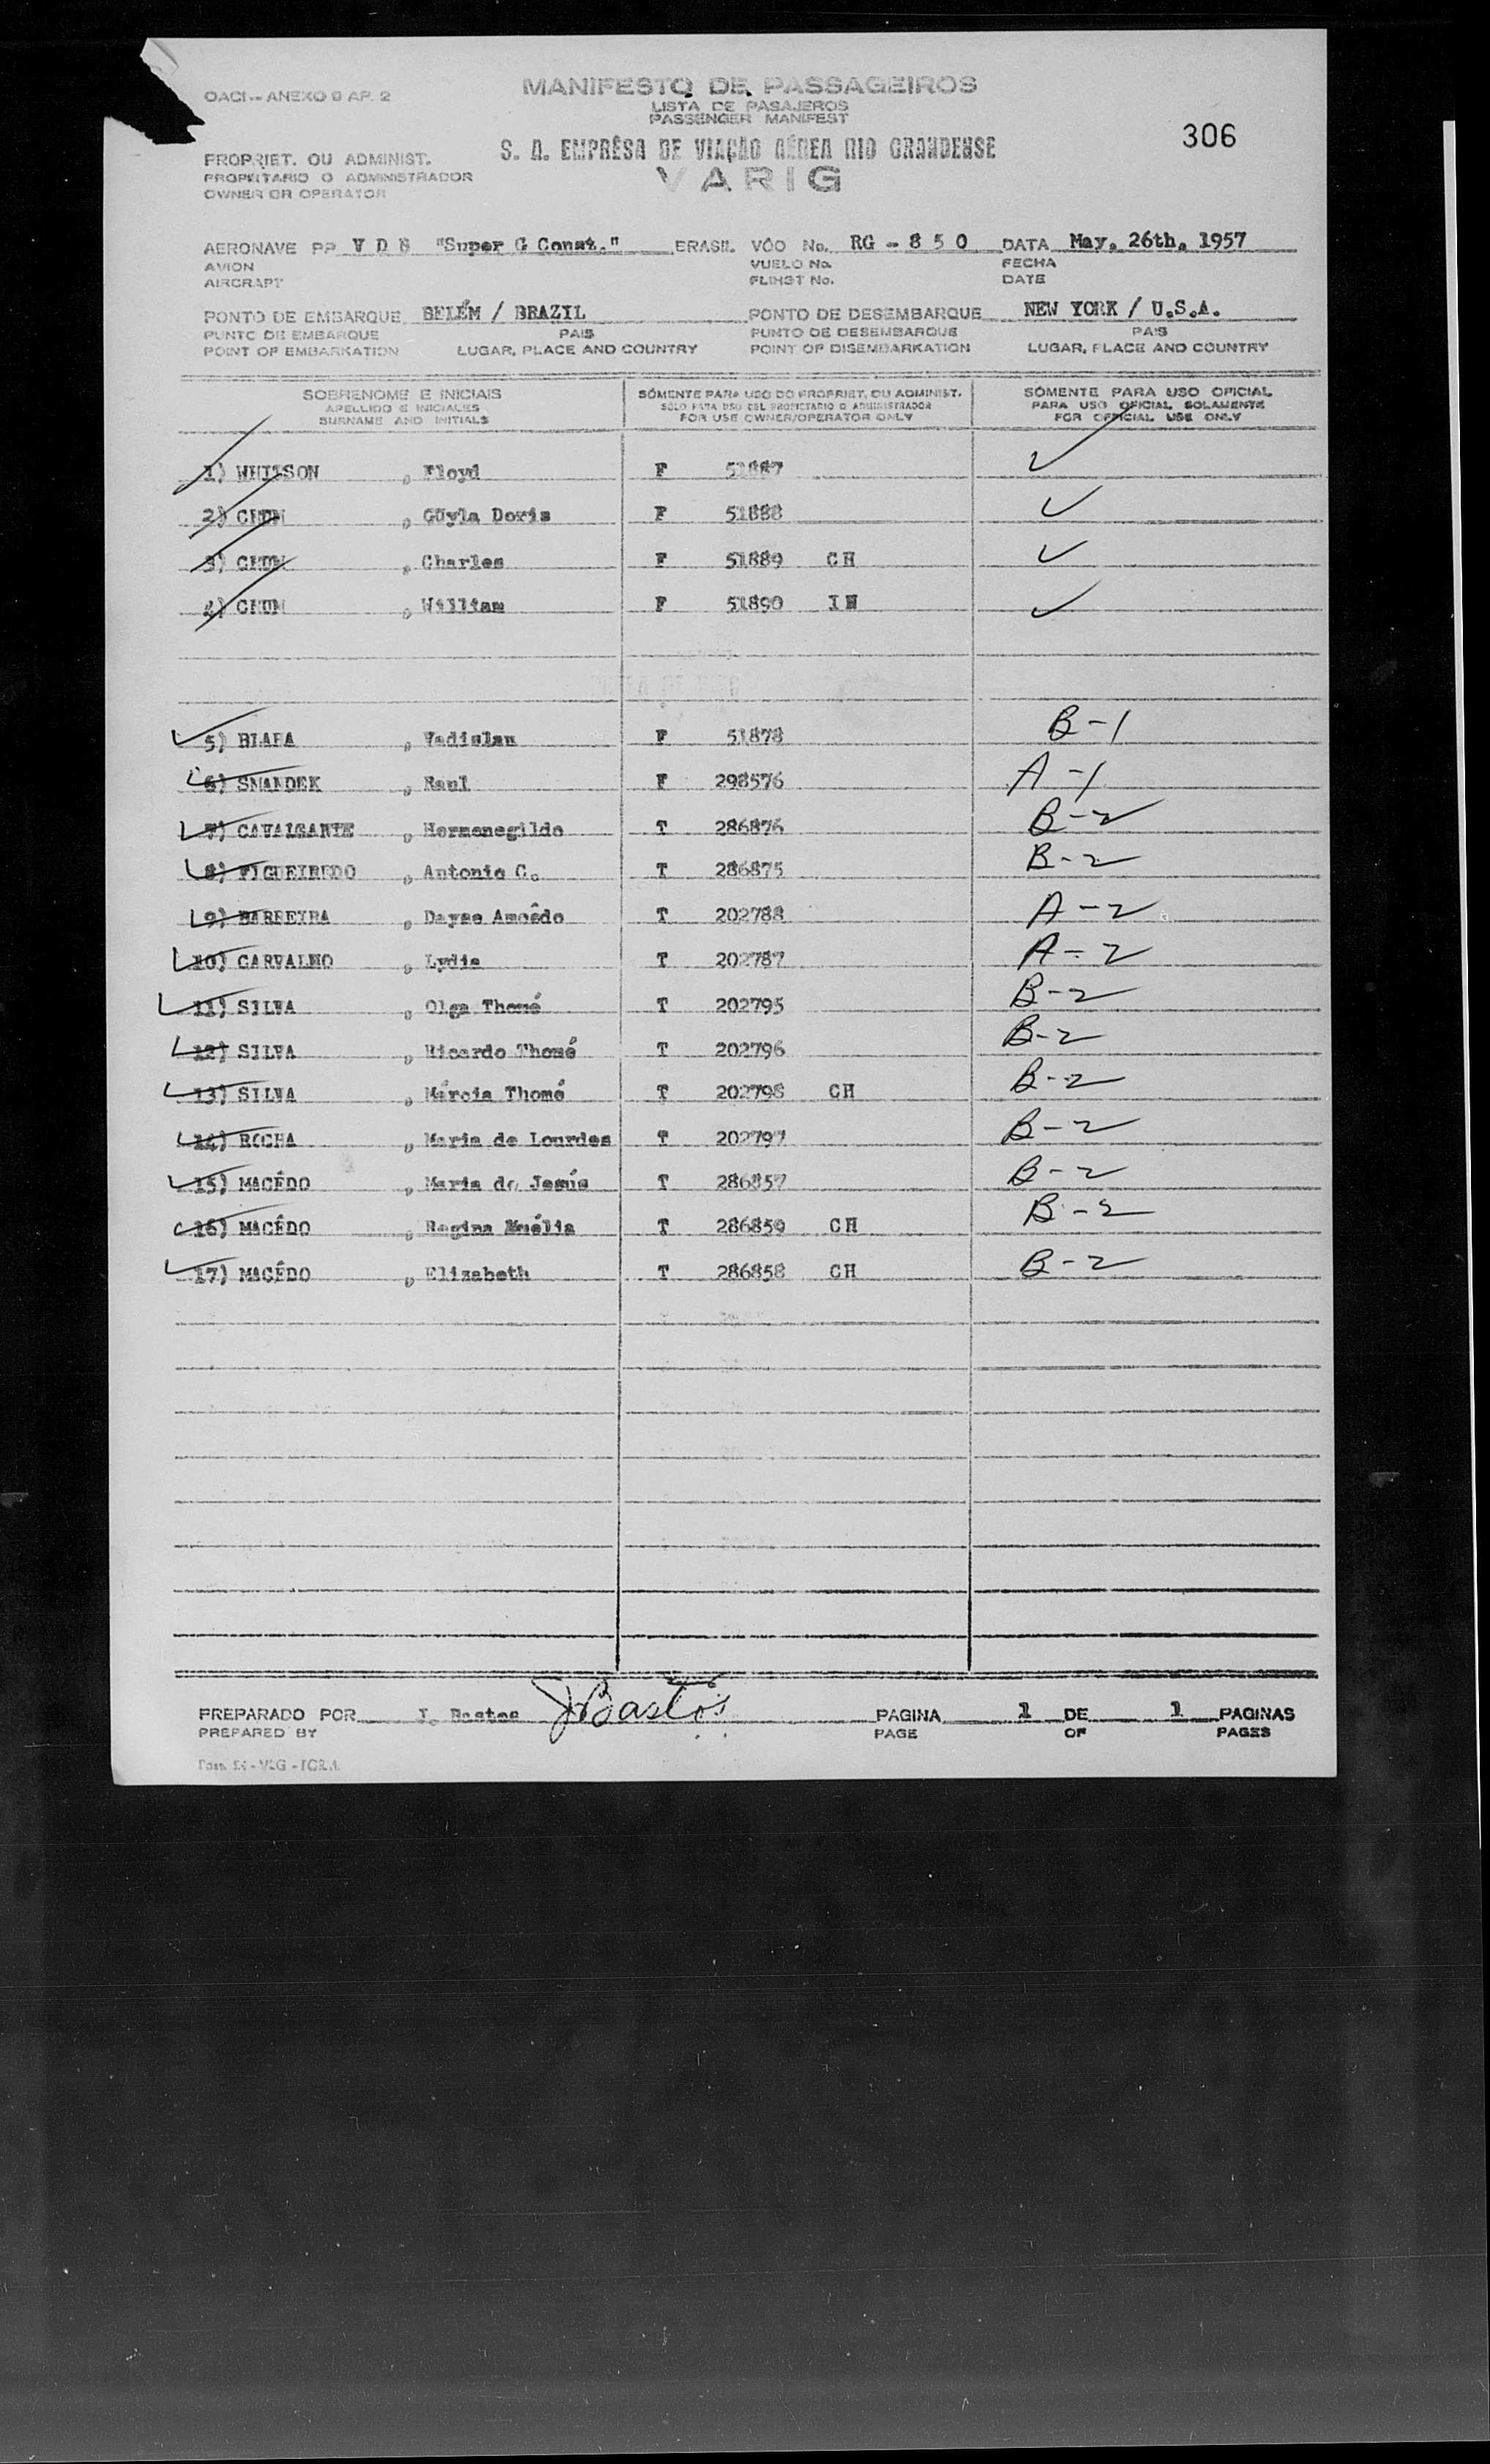 OACI - ANEXO 9 AP. 2
MANIFESTO DE PASSAGEIROS
LISTA DE PASAJEROS
PASSENGER MANIFEST
306
S. A. EMPRÊSA DE VIAÇÃO AÉREA RIO GRANDENSE
VARIG
PROPRIET. OU ADMINIST.
PROPRITARIO O ADMINISTRADOR
OWNER OR OPERATOR
AERONAVE PP V D "Super G Const." BRASIL VÔO No. RG - 8 5 0 DATA May, 26th, 1957
AVION VUELO No. FECHA
AIRCRAFT FLIHGT No. DATE
PONTO DE EMBARQUE BELÉM / BRAZIL PONTO DE DESEMBARQUE NEW YORK / U.S.A.
PUNTO DE EMBARQUE PAIS PUNTO DE DESEMBARQUE PAIS
POINT OF EMBARKATION LUGAR, PLACE AND COUNTRY POINT OF DISEMBARKATION LUGAR, PLACE AND COUNTRY
SOBRENOME E INICIAIS SÓMENTE PARA USO DO PROPRIET. OU ADMINIST. SÓMENTE PARA USO OFICIAL
APELLIDO E INICIALES SÓLO PARA USO DEL PROPIETARIO O ADMINISTRADOR PARA USO OFICIAL SOLAMENTE
SURNAME AND INITIALS FOR USE OWNER/OPERATOR ONLY FOR OFFICIAL USE ONLY
1) WHITSON , Floyd F 51887 ✓
2) CHUN , Doris F 51888 ✓
3) CHUN , Charles F 51889 CH ✓
4) CHUN , William F 51890 IN ✓
5) , Vadislau F 51878 B-1
6) SMANDEK , Raul F 298576 A-1
7) CAVALCANTE , Hermenegildo T 286876 B-2
8) FIGUEIREDO , Antonio C. T 286875 B-2
9) BARREIRA , Dayse Amoêdo T 202788 A-2
10) CARVALHO , Lydia T 202787 A-2
11) SILVA , Olga Thomé T 202795 B-2
12) SILVA , Ricardo Thomé T 202796 B-2
13) SILVA , Márcia Thomé T 202798 CH B-2
14) ROCHA , Maria de Lourdes T 202797 B-2
15) MACÊDO , Maria de Jesús T 286857 B-2
16) MACÊDO , Regina T 286859 CH B-2
17) MACÊDO , Elizabeth T 286858 CH B-2
PREPARADO POR J. Bastos JBastos PAGINA 1 DE 1 PAGINAS
PREPARED BY PAGE OF PAGES